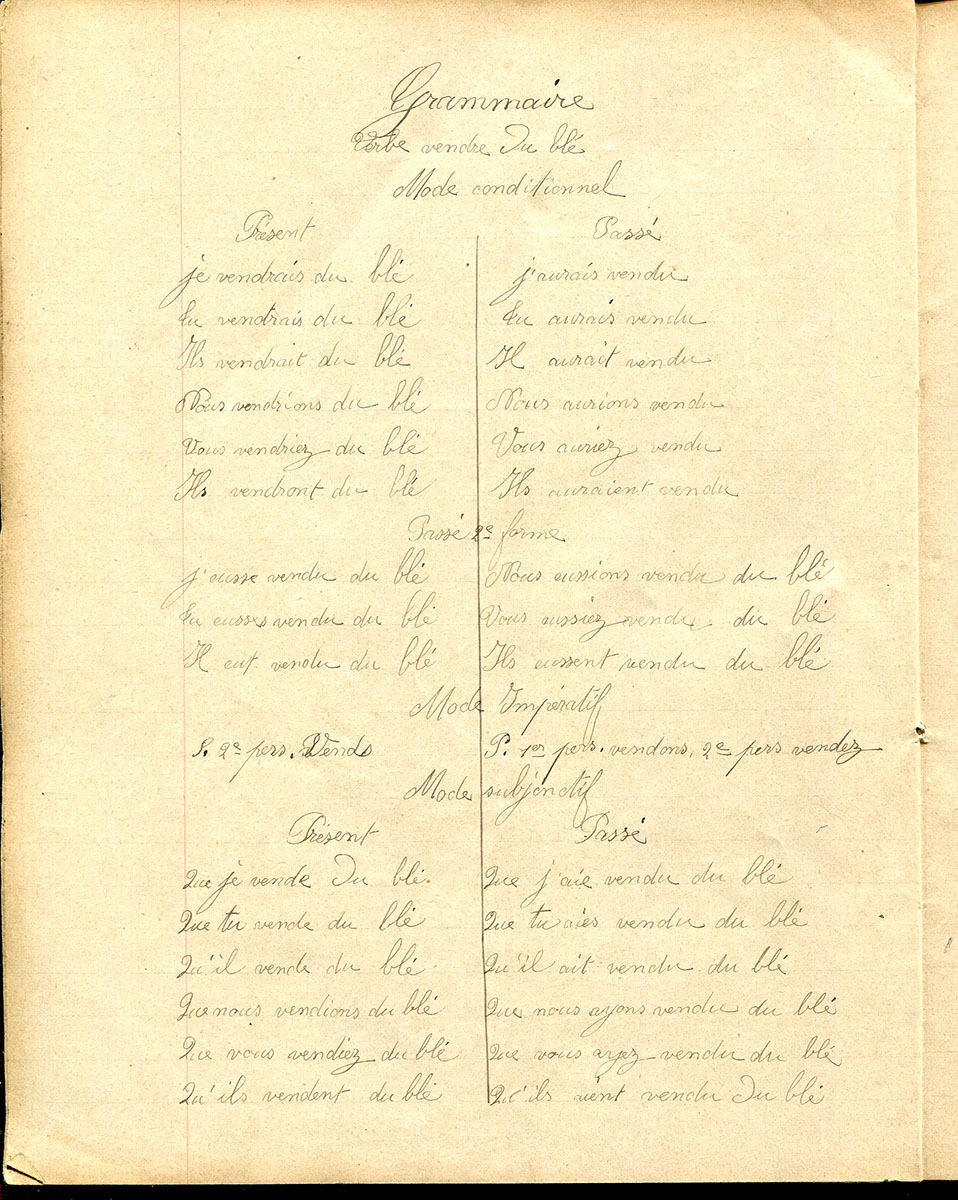 Grammaire
Verbe vendre du blé
Mode conditionnel
Présent
je vendrais du blé
tu vendrais du blé
Ils vendrait du blé
Nous vendrions du blé
Vous vendriez du blé
Ils vendront du blé
Passé
j'aurais vendu
tu aurais vendu
Il aurait vendu
Nous aurions vendu
Vous auriez vendu
Ils auraient vendu
Passé 2e forme
j'eusse vendu du blé
tu eusses vendu du blé
Il eut vendu du blé
Nous eussions vendu du blé
Vous eussiez vendu du blé
Ils eussent vendu du blé
Mode Impératif
S. 2e pers. Vends
P. 1er pers. vendons, 2e pers vendez
Mode subjonctif
Présent
Que je vende du blé.
Que tu vende du blé
Qu'il vende du blé.
Que nous vendions du blé
Que vous vendiez du blé
Qu'ils vendent du blé
Passé
Que j'aie vendu du blé
Que tu aies vendu du blé
Qu'il ait vendu du blé
Que nous ayons vendu du blé
Que vous ayez vendu du blé
Qu'ils aient vendu du blé